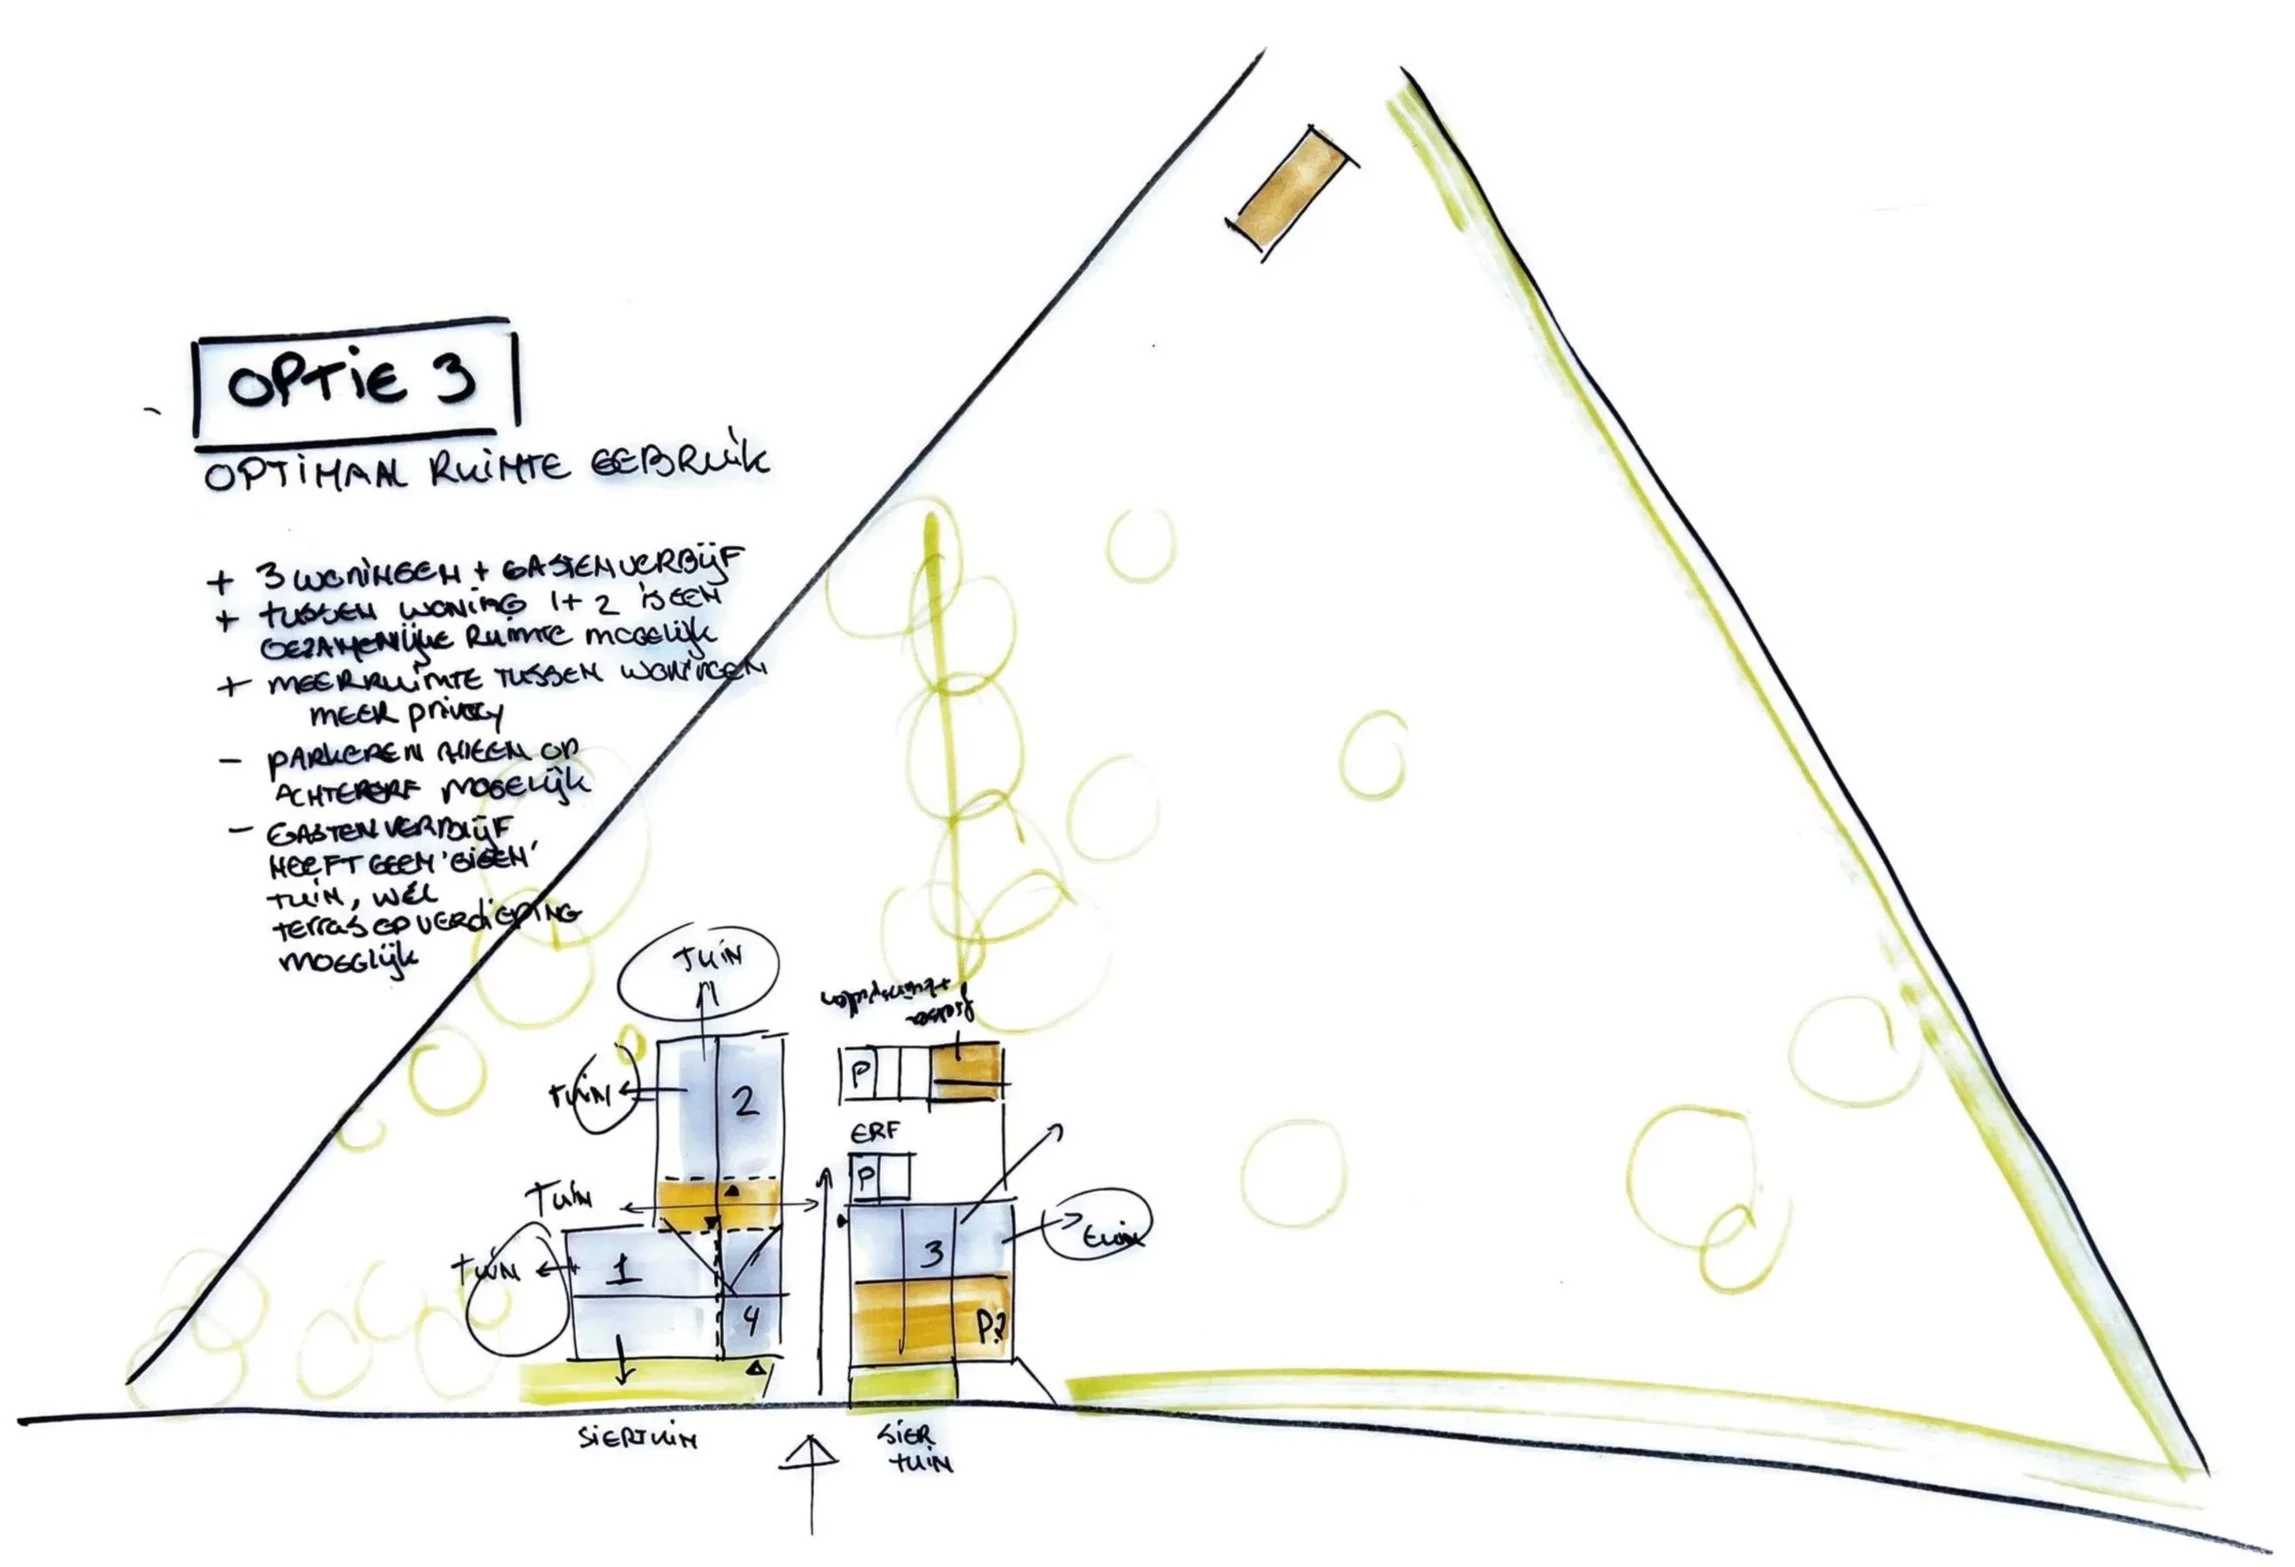 OPTiE 3
OPTIMAAL RUIMTE GEBRUIK
+ 3 WONINGEN + GASTENVERBLIJF
+ TUSSEN WONING 1+2 IS EEN
GEZAMENLIJKE RUIMTE MOGELIJK
+ MEER RUIMTE TUSSEN WONINGEN
MEER privacy
- PARKEREN ALLEEN OP
ACHTERERF MOGELIJK
- GASTENVERBLIJF
HEEFT GEEN 'EIGEN'
TUIN, WEL
TERRAS OP VERDIEPING
MOGELIJK
TUIN
TUIN
2
P
ERF
P
TUIN
TUIN
1
3
TUIN
4
P?
SIERTUIN
SIER
TUIN